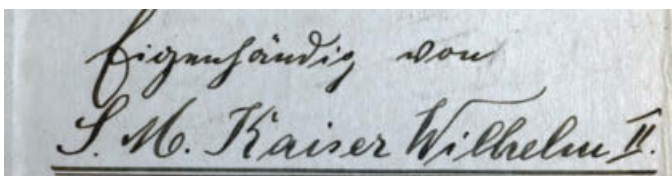 Eigenhändig von
S. M. Kaiser Wilhelm II.